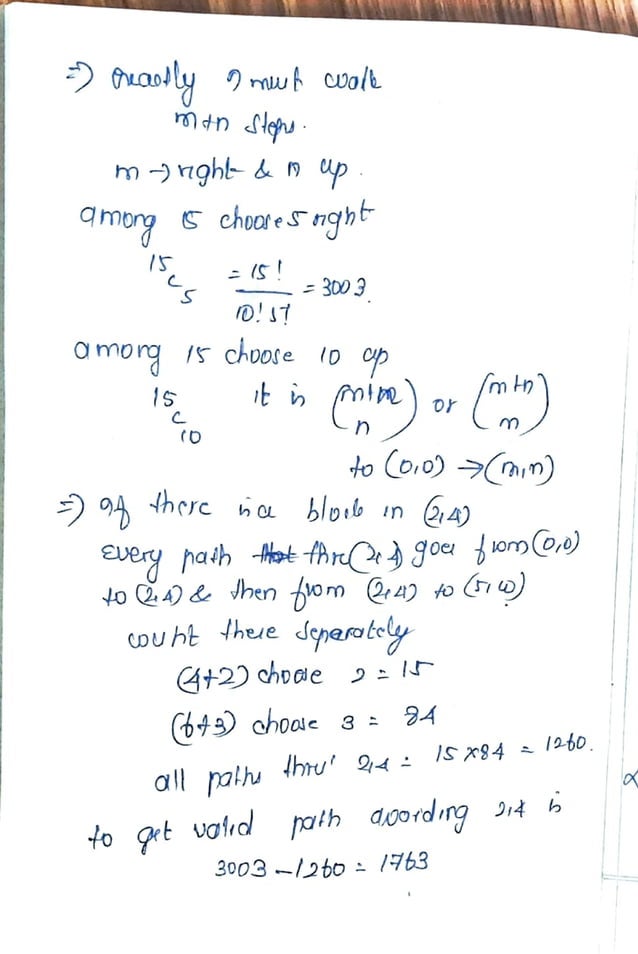 => exactly I must walk
m+n steps.
m → right & n up.
among 15 choose 5 right
15 C 5 = 15! / 10! 5! = 3003.
among 15 choose 10 up
15 C 10 it is (m+n n) or (m+n m)
to (0,0) → (m,n)
=> If there is a block in (2,4)
every path thro (2,4) goes from (0,0)
to (2,4) & then from (2,4) to (5,10)
count these separately
(4+2) choose 2 = 15
(6+3) choose 3 = 84
all paths thru' 2,4 = 15 x 84 = 1260.
to get valid path avoording 2,4 is
3003 - 1260 = 1763